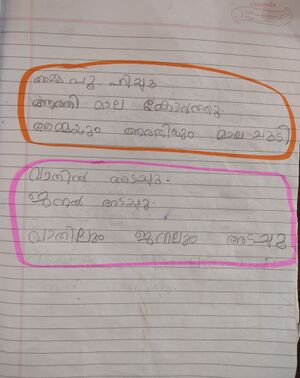 അമ്മ പൂ പറിച്ചു
ആരതി മാല കോർത്തു.
അമ്മയും ആരതിയും മാല ചൂടി
വാതിൽ അടച്ചു.
ജനൽ അടച്ചു.
വാതിലും ജനലും അടച്ചു